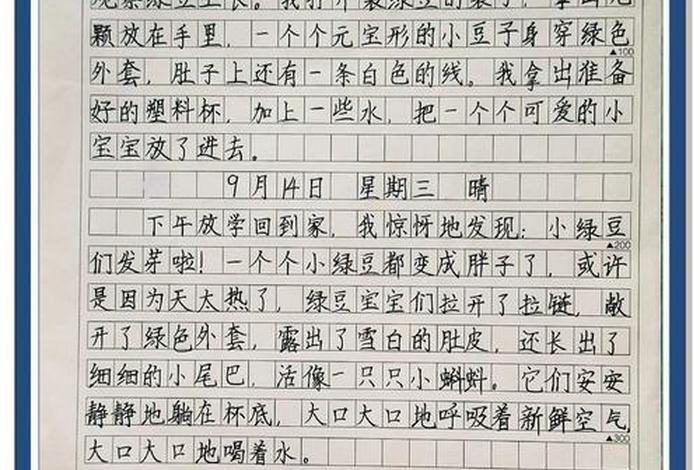 颗放在手里，一个个元宝形的小豆子身穿绿色
▲100
外套，肚子上还有一条白色的线。我拿出准备
好的塑料杯，加上一些水，把一个个可爱的小
宝宝放了进去。
9月14日 星期三 晴
下午放学回到家，我惊讶地发现：小绿豆
▲200
们发芽啦！一个个小绿豆都变成胖子了，或许
是因为天太热了，绿豆宝宝们拉开了拉链，敞
开了绿色外套，露出了雪白的肚皮，还长出了
细细的小尾巴，活像一只只小蝌蚪。它们安安
静静地躺在杯底，大口大口地呼吸着新鲜空气，
▲300
大口大口地喝着水。